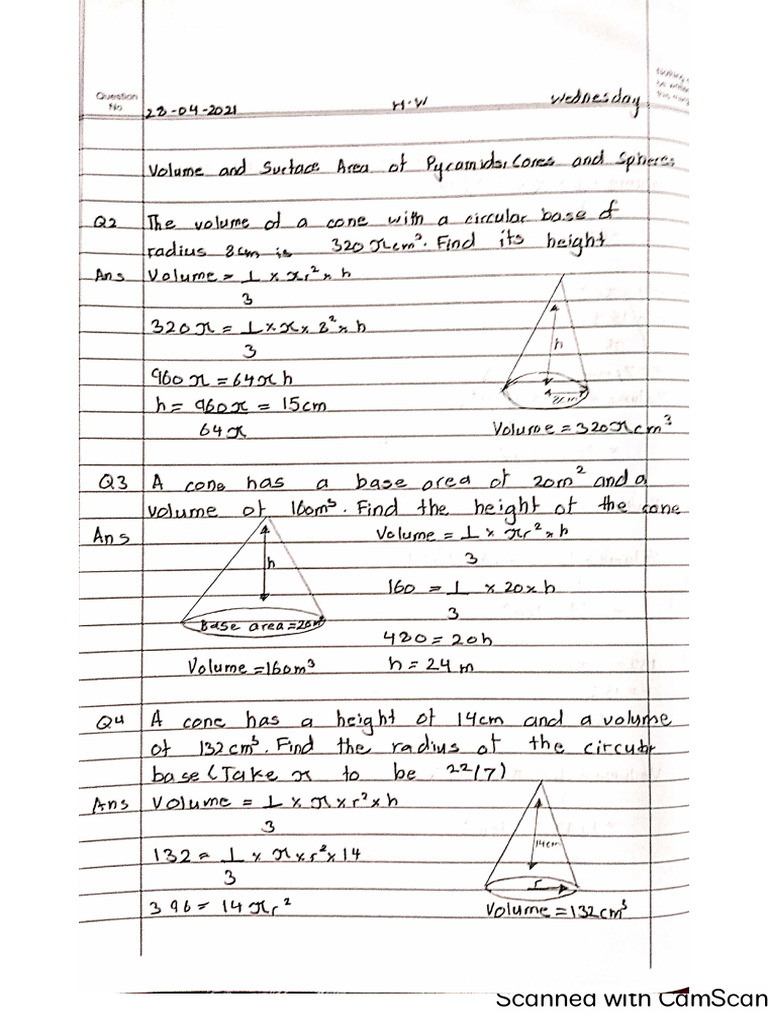 Question
No
28-04-2021 H.W Wednesday
Volume and Surface Area of Pyramids, Cones and Spheres
Q2 The volume of a cone with a circular base of
radius 8cm is 320πcm³. Find its height
Ans Volume = 1/3 × πr² × h
320π = 1/3 × π × 8² × h
960π = 64πh
h = 960π/64π = 15cm
h
8cm
Volume = 320πcm³
Q3 A cone has a base area of 20m² and a
volume of 160m³. Find the height of the cone
Ans Volume = 1/3 × πr² × h
h
160 = 1/3 × 20 × h
Base area = 20m²
480 = 20h
Volume = 160m³ h = 24 m
Q4 A cone has a height of 14cm and a volume
of 132cm³. Find the radius of the circular
base (Take π to be 22/7)
Ans Volume = 1/3 × π × r² × h
132 = 1/3 × π × r² × 14
14cm
r
396 = 14πr² Volume = 132cm³
Scanned with CamScan